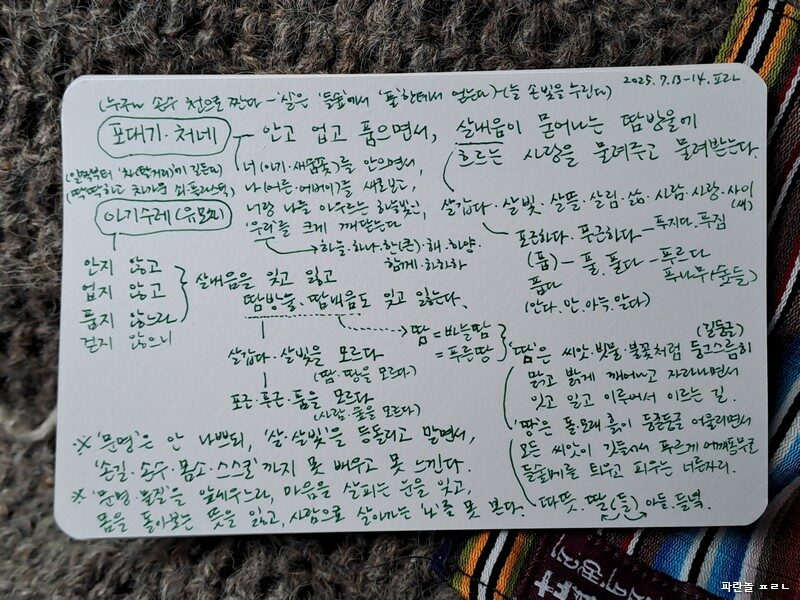 (누구나 손수 천으로 짠다 - '실'은 '들숲'에서 '풀'한테서 얻는다)-(늘 손빛을 누린다)
2025.7.13-14. ㅍㄹㄴ
포대기·처네 — 안고 업고 품으면서, 살내음이 묻어나는 땀방울에
흐르는 사랑을 물려주고 물려받는다.
너(아기·새뜸꽃)를 안으면서,
나(어른·어버이)를 새로보고,
너랑 나를 아우르는 하늘빛인,
'우리'를 크게 깨닫는다
→ 하늘·하나·한(큰)·해·하양·
함께·하하하
(딱딱하고 차가운 쇠·플라스틱)
아기수레(유모차)
안지 않고
업지 않고
품지 않느라
걷지 않으니
살내음을 잊고 잃고
땀방울·땀내음도 잊고 잃는다.
살갑다·살빛·살뜰·살림·삶·사람·사랑·사이
(새)
포근하다·푸근하다 — 푸지다·푸짐
(품) — 풀·풀다 — 푸르다
품다
푸나무(숲들)
(안다·안·아늑·알다)
살갑다·살빛을 모르다
(땀·땅을 모르다)
포근·푸근·품을 모르다
(사람·숲을 모르다)
땀 = 바늘땀
= 푸른땅
(길동글)
'땀'은 씨앗·빗물·불꽃처럼 둥그스름히
맑고 밝게 깨어나고 자라나면서
잇고 일고 이루어서 이르는 길.
'땅'은 돌·모래·흙이 둥글둥글 어울리면서
모든 씨앗이 깃들어서 푸르게 어깨동무로
들숲내를 틔우고 피우는 너른자리.
따뜻·딸(들) 아들·들녘
※ '문명'은 안 나쁘되, '살·살빛'을 등돌리고 말면서,
'손길·손수·몸소·스스로'까지 못 배우고 못 느낀다.
※ '문명·물질'을 앞세우느라, 마음을 살피는 눈을 잊고,
몸을 돌아보는 뜻을 잃고, 사람으로 살아가는 '나'를 못 본다.
파란놀 ㅍㄹㄴ